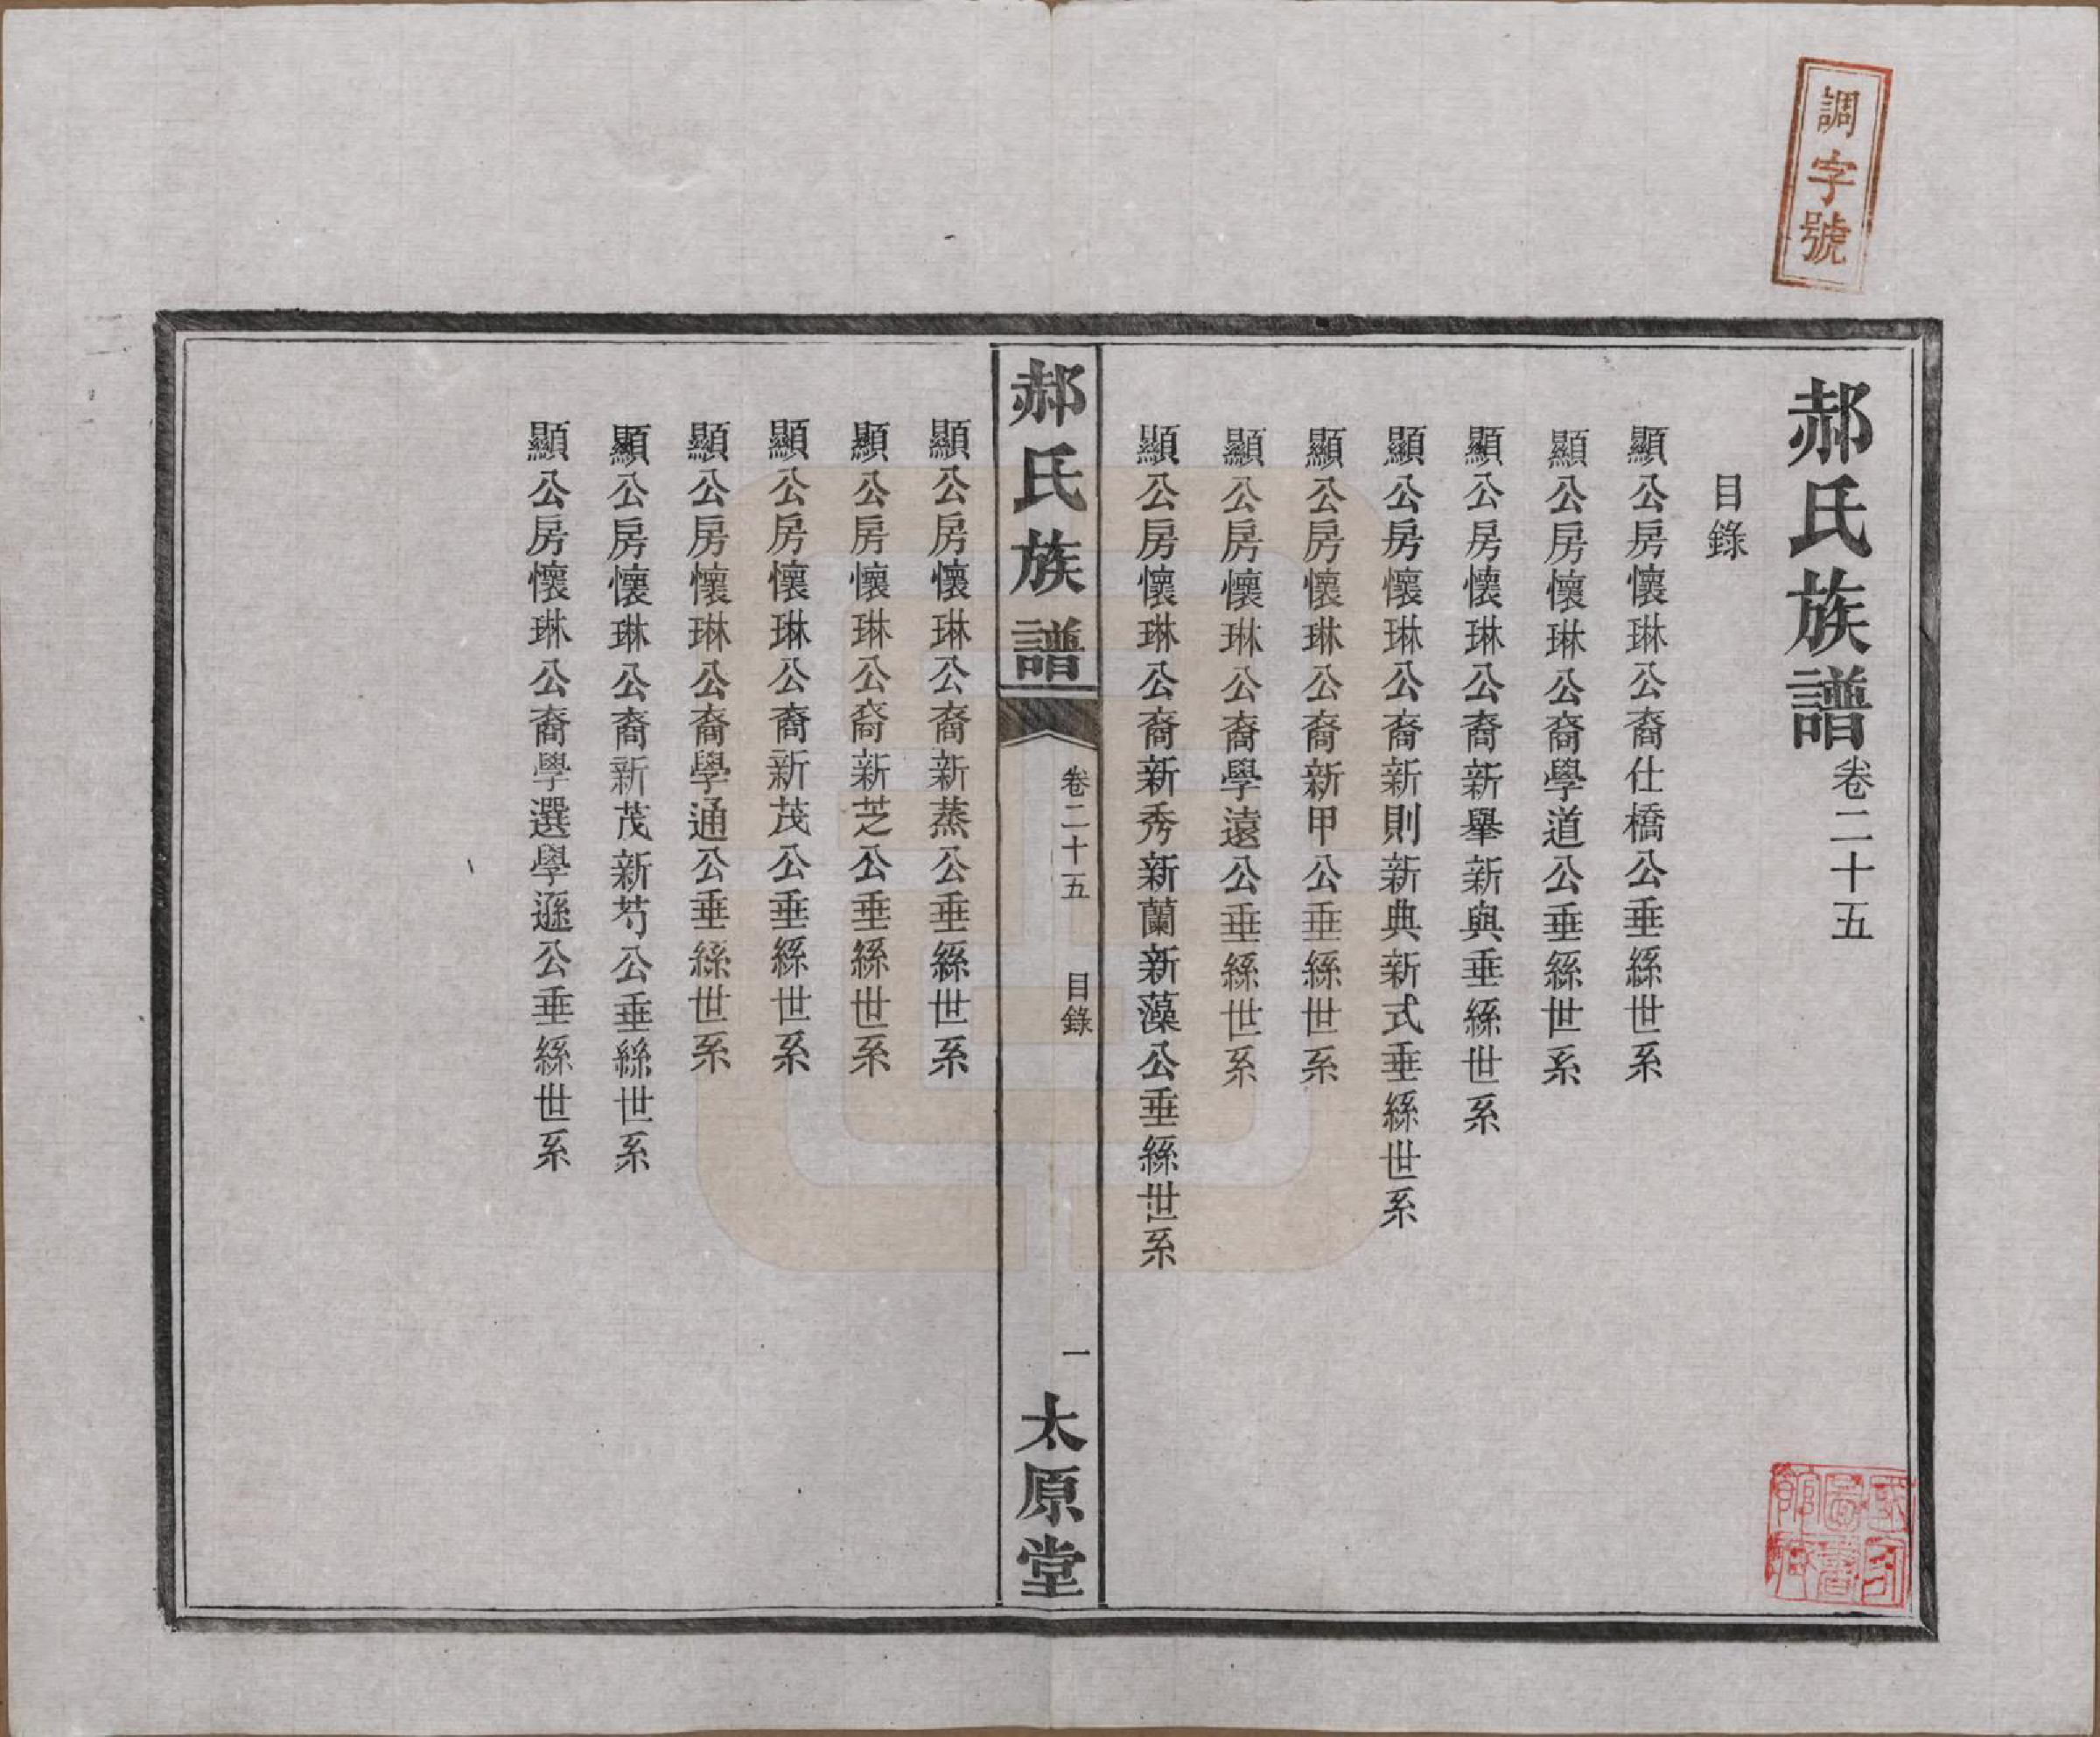 調字號
郝氏族譜卷二十五
目錄
顯公房懷琳公裔仕橋公垂絲世系
顯公房懷琳公裔學道公垂絲世系
顯公房懷琳公裔新舉新與垂絲世系
顯公房懷琳公裔新則新典新式垂絲世系
顯公房懷琳公裔新甲公垂絲世系
顯公房懷琳公裔學遠公垂絲世系
顯公房懷琳公裔新秀新蘭新藻公垂絲世系
郝氏族譜
卷二十五
目錄
一
太原堂
顯公房懷琳公裔新蒸公垂絲世系
顯公房懷琳公裔新芝公垂絲世系
顯公房懷琳公裔新茂公垂絲世系
顯公房懷琳公裔學通公垂絲世系
顯公房懷琳公裔新茂新芍公垂絲世系
顯公房懷琳公裔學選學遜公垂絲世系